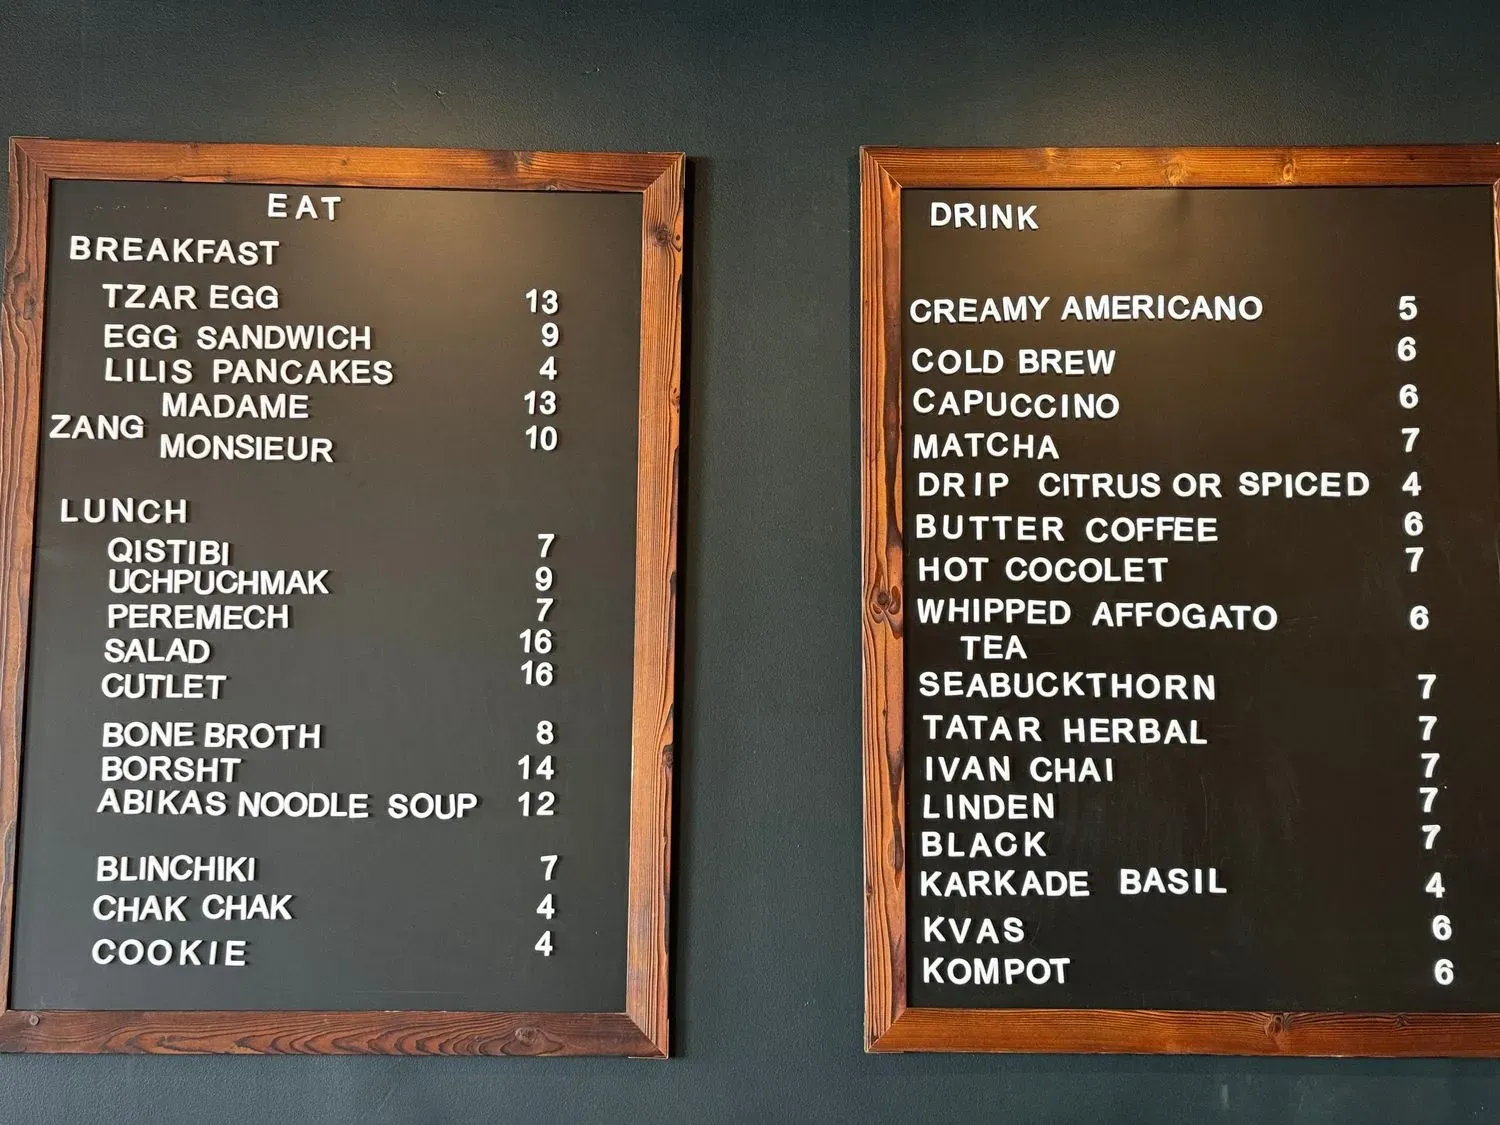 EAT
BREAKFAST
TZAR EGG 13
EGG SANDWICH 9
LILIS PANCAKES 4
MADAME 13
ZANG
MONSIEUR 10
LUNCH
QISTIBI 7
UCHPUCHMAK 9
PEREMECH 7
SALAD 16
CUTLET 16
BONE BROTH 8
BORSHT 14
ABIKAS NOODLE SOUP 12
BLINCHIKI 7
CHAK CHAK 4
COOKIE 4
DRINK
CREAMY AMERICANO 5
COLD BREW 6
CAPUCCINO 6
MATCHA 7
DRIP CITRUS OR SPICED 4
BUTTER COFFEE 6
HOT COCOLET 7
WHIPPED AFFOGATO 6
TEA
SEABUCKTHORN 7
TATAR HERBAL 7
IVAN CHAI 7
LINDEN 7
BLACK 7
KARKADE BASIL 4
KVAS 6
KOMPOT 6